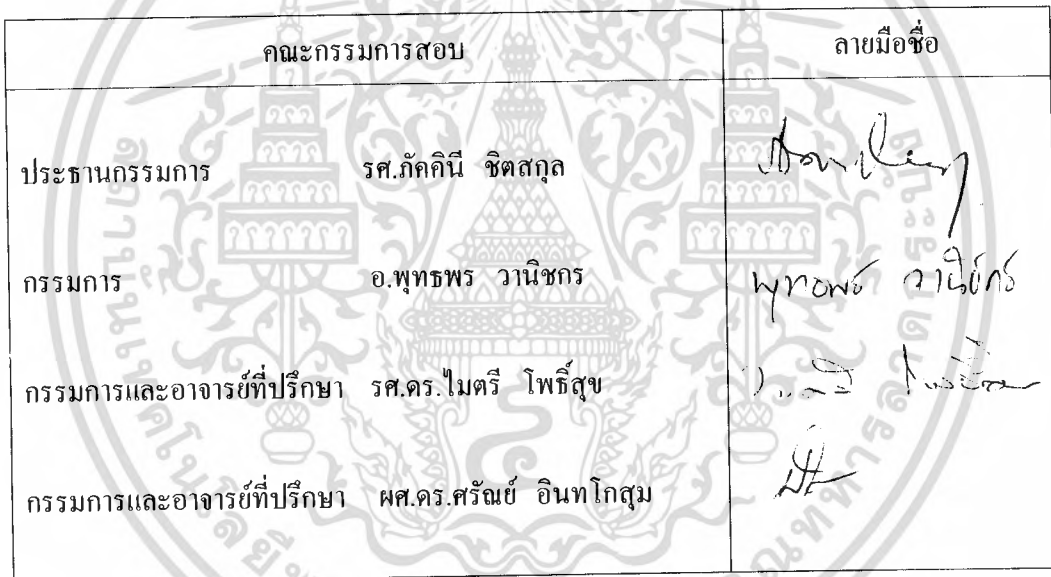 คณะกรรมการสอบ ลายมือชื่อ
ประธานกรรมการ รศ.ภัคคินี ชิตสกุล
กรรมการ อ.พุทธพร วานิชกร พุทธพร วานิชกร
กรรมการและอาจารย์ที่ปรึกษา รศ.ดร.ไมตรี โพธิ์สุข
กรรมการและอาจารย์ที่ปรึกษา ผศ.ดร.ศรัณย์ อินทโกสุม